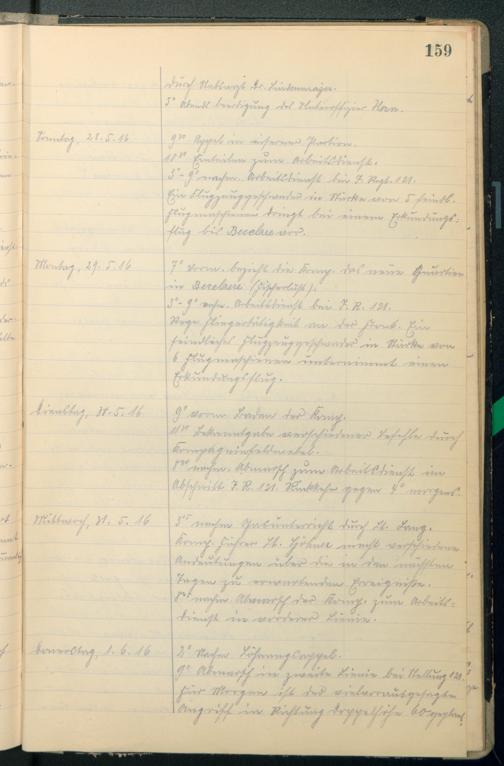 159
durch Stabsarzt Dr. Lindenmajer.
5° Abends Beerdigung des Unteroffizier Horn.
Sonntag, 28.5.16
9°° Appell in eiserner Portion.
Eintreten zum Arbeitsdienst.
3°-9° nachm. Arbeitsdienst bei J. Regt. 121.
Ein Flugzeuggeschwader in Stärke von 5 feindl.
Flugmaschinen dringt bei einem Erkundungs-
flug bis Becelare vor.
Montag, 29.5.16
7° vorm. bezieht die Komp. das neue Quartier
in Becelaere (Fischerlust).
3°-9° nachm. Arbeitsdienst bei J. R. 121.
Rege Fliegertätigkeit an der Front. Ein
feindliches Flugzeuggeschwader in Stärke von
6 Flugmaschinen unternimmt einen
Erkundungsflug.
Dienstag, 30.5.16
9° vorm. Baden der Komp.
Bekanntgabe verschiedener Befehle durch
Kompagniefeldwebel.
nachm. Abmarsch zum Arbeitsdienst im
Abschnitt J. R. 121. Rückkehr gegen 4° morgens.
Mittwoch, 31. 5. 16
nachm Gasunterricht durch Lt. Lang.
Komp. Führer Lt. macht verschiedene
Andeutungen über die in den nächsten
Tagen zu erwartenden Ereignisse.
nachm Abmarsch der Komp. zum Arbeits-
dienst in vorderer Linie.
Donnerstag, 1. 6. 16
2° Nachm Löhnungsappell.
Abmarsch in zweite Linie bei Stellung
Für Morgen ist der vielvorausgesagte
Angriff in Richtung Doppelhöhe 60 geplant.